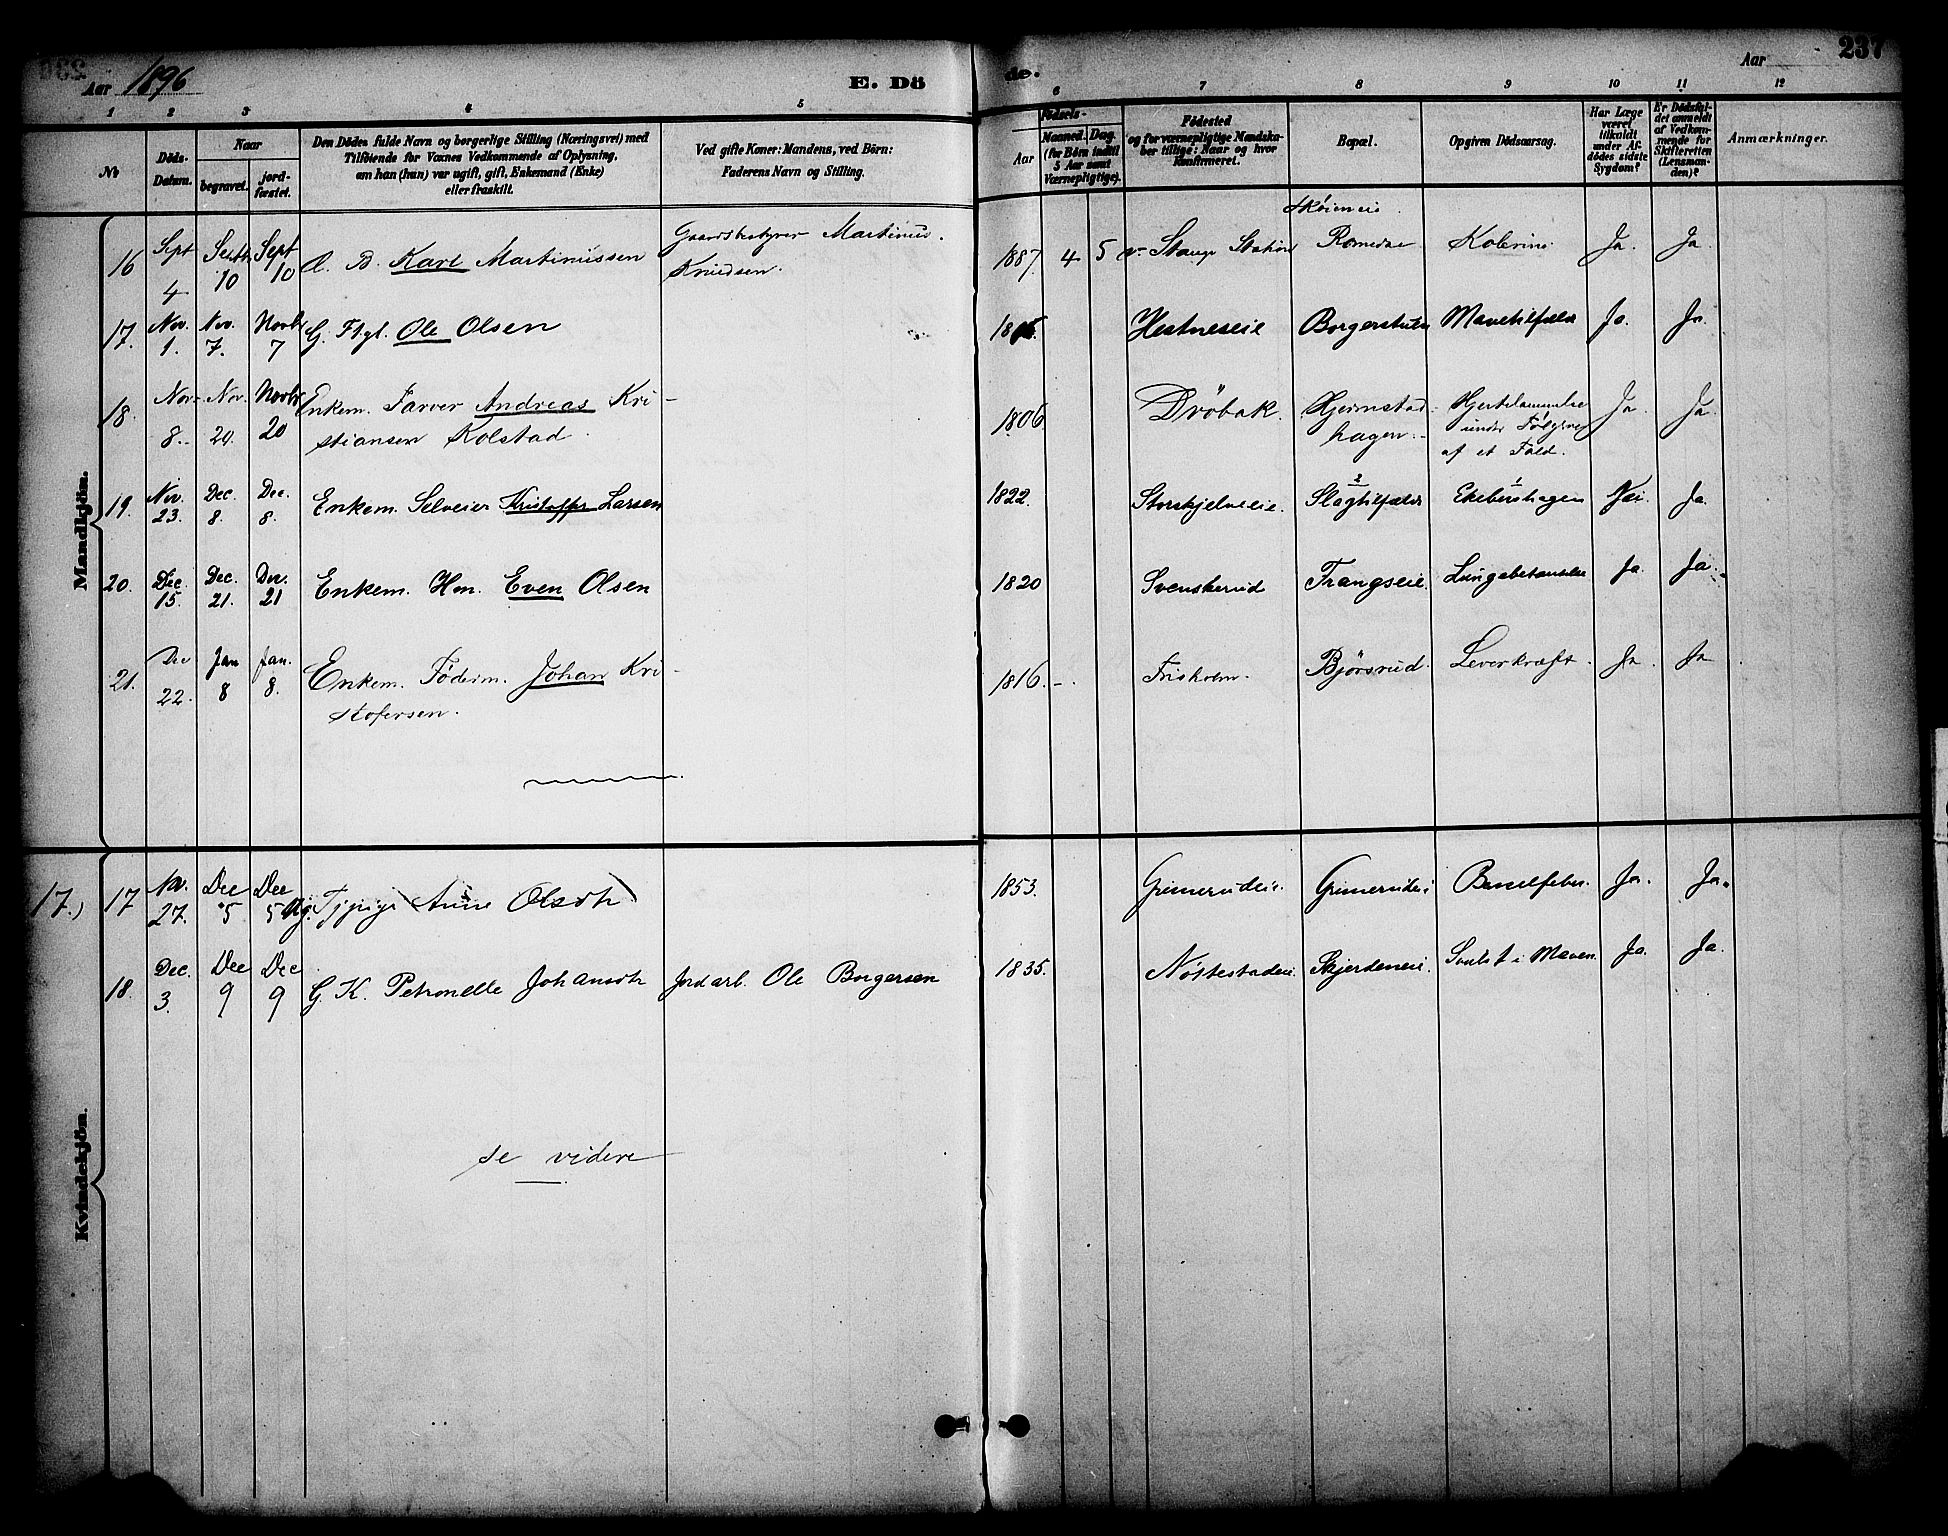 Aar 1896
E. Döde.
Aar
237
1 2 3 4 5 6 7 8 9 10 11 12
№
Döds-
Datum.
Naar
begravet.
jord-
fæstet.
Den Dödes fulde Navn og borgerlige Stilling (Næringsvei) med
Tilföiende for Voxnes Vedkommende af Oplysning,
om han (hun) var ugift, gift, Enkemand (Enke)
eller fraskilt.
Ved gifte Koner: Mandens, ved Börn:
Faderens Navn og Stilling.
Födsels-
Aar
Maaned. Dag.
(for Börn indtil
5 Aar samt
Værnepligtige).
Födested
og for værnepligtige Mandska-
ber tillige: Naar og hvor
konfirmeret.
Bopæl.
Opgiven Dödsaarsag.
Har Læge
været
tilkaldt
under Af-
dödes sidste
Sygdom?
Er Dödsfal-
det anmeldt
af Vedkom-
mende for
Skifteretten
(Lensman-
den)?
Anmærkninger.
Mandkjön.
16 Sept 4 Septb 10 Sept 10 B. Karl Martiniussen Gaardsbestyrer Martinius Knudsen. 1887 4 5 v. Stange Station Skøieneie Romedal Kolerine Ja. Ja.
17. Nov. 1. Nov. 7. Novbr 7 G. Ole Olsen Hestneseie Borgerstuen Mavetilfælde Ja. Ja.
18. Nov. 8. Nov. 20. Novbr 20 Enkem. Farver Andreas Kri-
stiansen Kolstad. 1806 Dröbak Hjermstad-
hagen. Hjertelammelse
under Følgerne
af et Fald. Ja. Ja.
19. Nov. 23. Dec. 8. Dec. 8. Enkem. Selveier Kristoffer Larsen 1822. Storskjelveeie. 2 Slagtilfælde 1 Ekebershagen Nei Ja.
20. Dec. 15. Dec. 21. Dec. 21 Enkem. Hm. Even Olsen 1820 Svenskerud Frangseie. Lungebetændelse Ja Ja.
21. Dec 22. Jan 8 Jan. 8. Enkem. Föderm. Johan Kri-
stofersen. 1816. Friskoven. Björsrud. Leverkræft. Ja. Ja
Kvindekjön.
17.) 17 Nov. 27. Dec 5 Dec 5 Ug. Tjpige Anne Olsdtr 1853. Grimerudeie. Grimerudeie Barselfeber. Ja. Ja.
18. Dec. 3. Dec 9 Dec 9 G. K. Petronelle Johansdtr Jordarb. Ole Borgersen 1835. Nöttestadeie. Skjerdeneie. Svulst i Maven Ja. Ja.
se videre